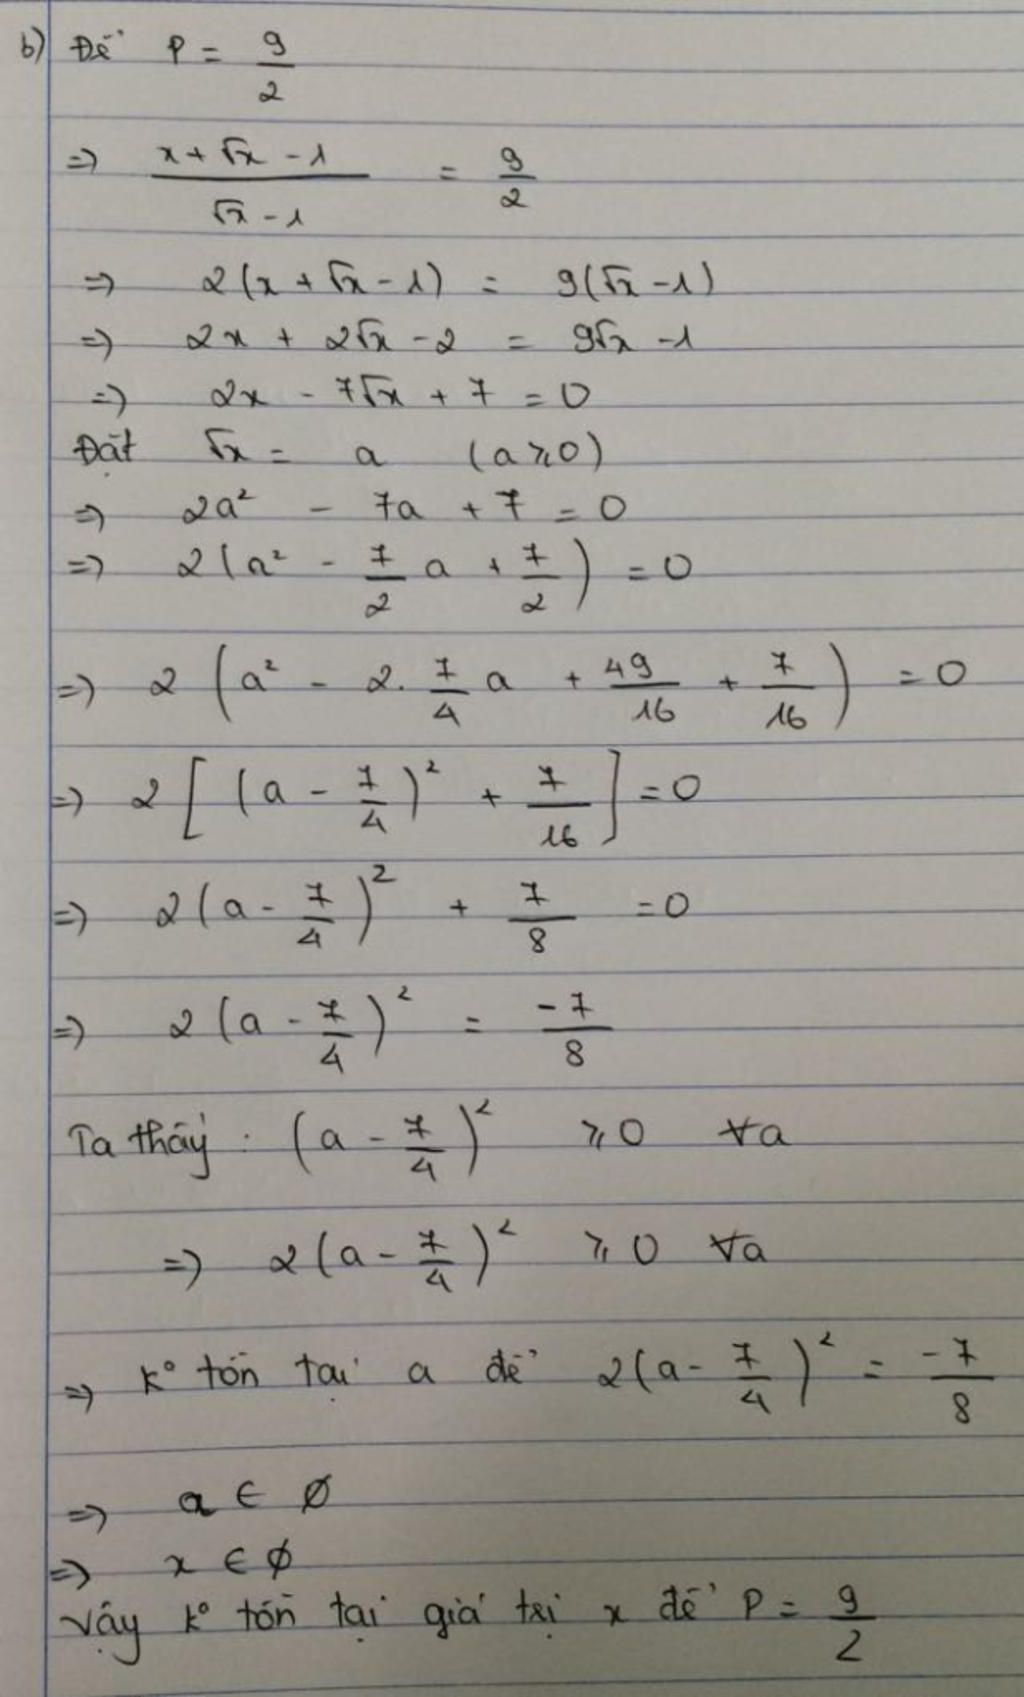 b) Để P = 9/2
=> (x + √x - 1)/(√x - 1) = 9/2
=> 2(x + √x - 1) = 9(√x - 1)
=> 2x + 2√x - 2 = 9√x - 1
=> 2x - 7√x + 7 = 0
Đặt √x = a (a ≥ 0)
=> 2a² - 7a + 7 = 0
=> 2(a² - 7/2 a + 7/2) = 0
=> 2(a² - 2. 7/4 a + 49/16 + 7/16) = 0
=> 2[(a - 7/4)² + 7/16] = 0
=> 2(a - 7/4)² + 7/8 = 0
=> 2(a - 7/4)² = -7/8
Ta thấy : (a - 7/4)² ≥ 0 ∀a
=> 2(a - 7/4)² ≥ 0 ∀a
=> k° tồn tại a để 2(a - 7/4)² = -7/8
=> a ∈ ∅
=> x ∈ ∅
Vậy k° tồn tại giá trị x để P = 9/2